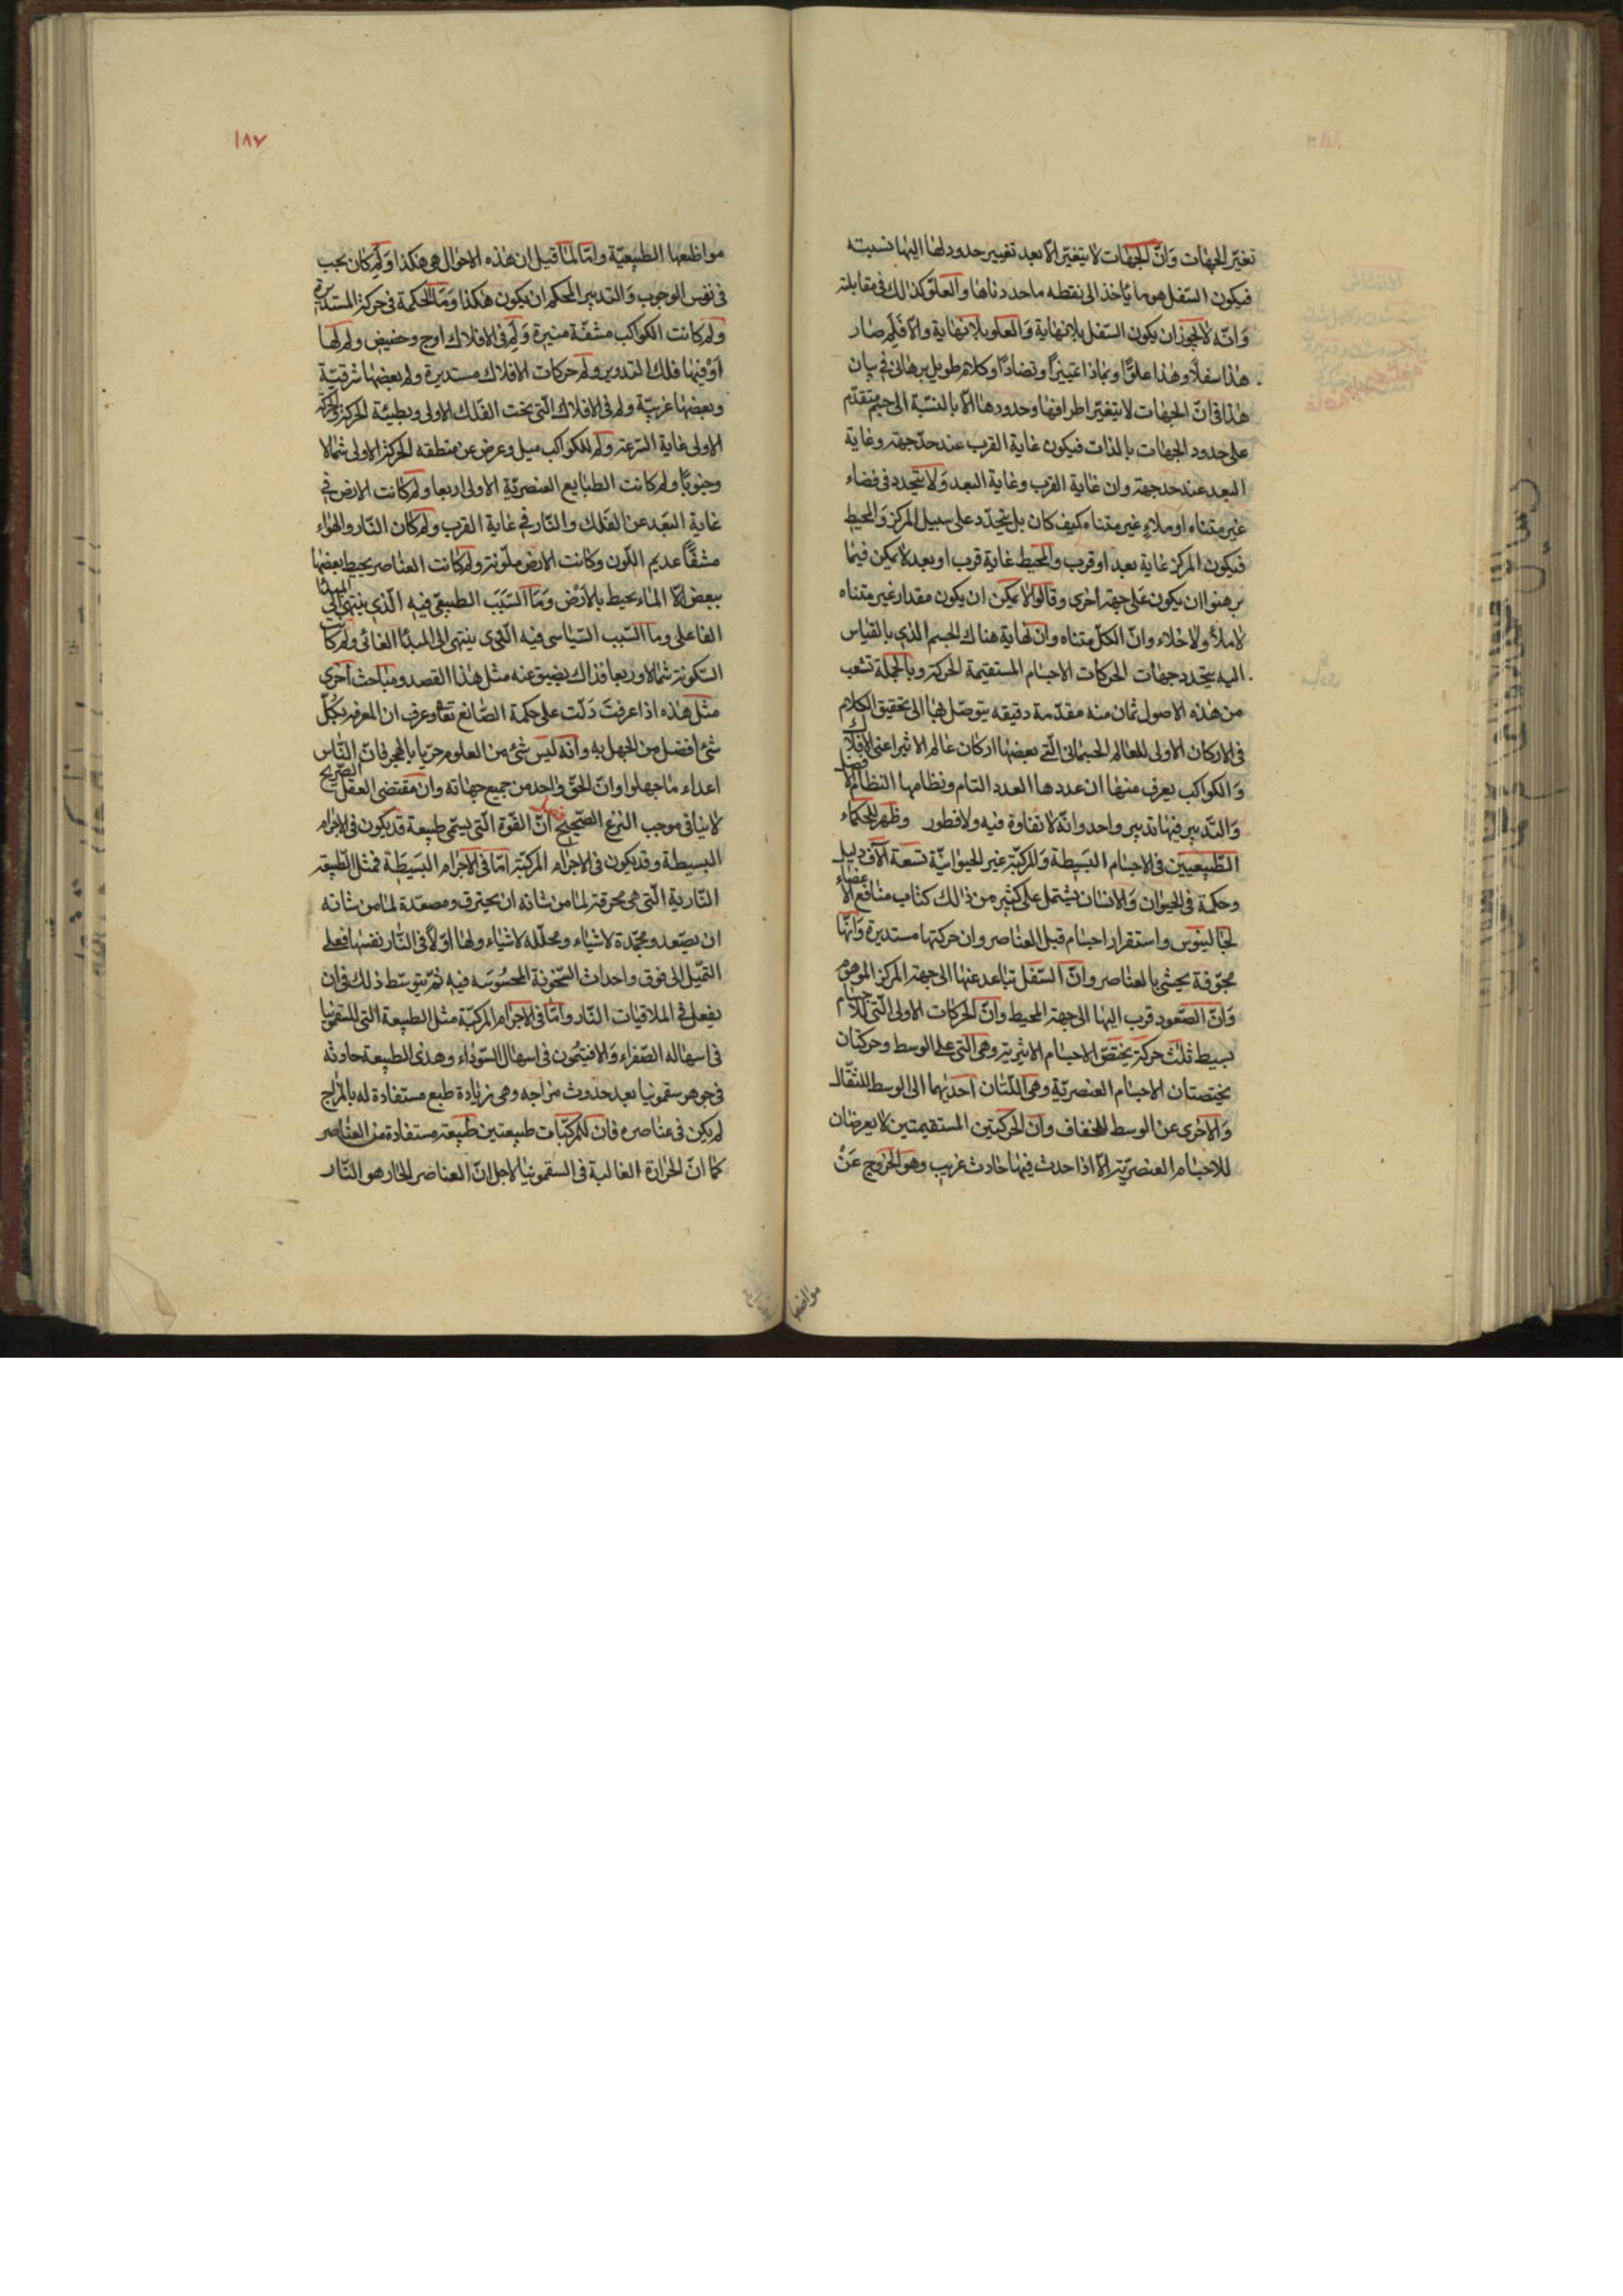 تغيّر الجهات وَانّ الجهات لا يتغيّر الّا بعد تغيير حدود لها اليها نسبته
فيكون السّفل هو ما يأخذ الى نقطه ما حددناها والعلوّ كذلك فى مقابلته
وَانّه لا يجوز ان يكون السّفل بلا نهاية وَالعلو بلا نهاية والّا فَلِم صار
هذا سفلًا وهذا علوًّا وبماذا تميّزا وتضادّا وكلام طويل برهانى فى بيان
هذا فى انّ الجهات لا يتغيّر اطرافها وحدودها الّا بالنسّبة الى جسم متقدّم
على حدود الجهات بالذات فيكون غاية القرب عند حدّ جهة وغاية
البعد عند حد جهة وان غاية القرب وغاية البعد وَلا يتحدد فى فضاء
غير متناه او ملاءٍ غير متناه كيف كان بل يتحدّد على سبيل المركز وَالمحيط
فيكون المركز غاية بعد او قرب والمحيط غاية قرب او بعد لا يمكن فيما
برهنوا ان يكون عَلى جهة اخرى وقالوا لا يمكن ان يكون مقدار غير متناه
لا ملأ ولا خلاء وانّ الكلّ متناه وان نهاية هناك الجسم الذى بالقياس
اليه يتحدد جهات الحركات الاجسام المستقيمة الحركة وبالجملة تشعب
من هذه الاصول ثمان منه مقدّمة دقيقه يتوصّل بها الى تحقيق الكلام
فى الاركان الاولى للعالم الجسمانى الّتى بعضها اركان عالم الاثير اعنى الافلاك
وَالكواكب يعرف منها ان عددها العدد التام ونظامها النظام الافضل
وَالتّدبير فيها تدبير واحد وانّه لا تفاوة فيه ولا فطور وظهر للحكماء
الطّبيعيين فى الاجسام البَسيطة وَالمركبّة غير الحيوانيّة تسعة آلاف دليل
وحكمة فى الحيوان وَالانسان يشتمل على كثير من ذالك كتاب منافع الاعضاء
لجالينوس واستقرار اجسام قبل العناصر وان حركتها مستديرة وَانّها
مجوّفة يحشى بالعناصر وانّ السّفل تباعد عنها الى جهة المركز الموهوم
وَانّ الصّعود قرب اليها الى جهة المحيط وانّ الحركات الاولى الّتى للاجسام
بسيط ثلث حركة يختصّ الاجسام الاثيرية وهى الّتى على الوسط وحركتان
يختصتان الاجسام العنصريّة وهى اللّتان احديهما الى الوسط للثقّال
وَالاخرى عن الوسط للخفاف وان الحركتين المستقيمتين لا يعرضان
للاجسام العنصريّة الّا اذا حدث فيها حادث غريب وهو الخروج عَنْ
مواضعها

١٨٧
مواضعها الطبيعيّة وامّا لما قيل ان هذه الاحوال هى هكذا وَلم كان يجب
فى نفوس الوجوب وَالتدبير المحكم ان يكون هكذا وَمَا الحكمة فى حركة المستديرة
ولم كانت الكواكب مشفّة منيرة وَلم فى الافلاك اوج وحضيض ولم لها
اوْ فيها فلك التدوير ولم حركات الافلاك مستديرة ولم بعضها شرقيّة
وبعضها غربيّة ولم فى الافلاك الّتى تحت الفلك الاولى وبطيئة الحركة والحركة
الاولى غاية السّرعة ولم للكواكب ميل وعرض عن منطقة الحركة الاولى شمالا
وجنوبًا ولم كانت الطبايع العنصريّة الاولى اربعا ولم كانت الارض فى
غاية البعد عن الفلك والنّار فى غاية القرب ولم كان النّار والهواء
مشفّا عديم اللّون وكانت الارض ملوّنة ولم كانت العناصر يحيط بعضها
ببعض الّا الماء يحيط بالارض وَمَا السّبَب الطبيعىّ فيه الّذى ينتهى الى المبدأ
الفاعلى وما السّبب السّياسى فيه الّذى ينتهى الى المبدأ الغائى ولم كانت
السّكونة شمالا وربعا فذاك يضيق عنه مثل هذا القصد ومباحث اخرى
مثل هذه اذا عرفت دَلّت على حكمة الصّانع تعا وعرف ان المعرفه بكُلّ
شئ افضل من الجهل به وانه ليس شئ من العلوم حريّا بالهجر فانّ النّاس
اعداء ما جهلوا وانّ الحقّ واحد من جميع جهاته وان مقتضى العقل الصّريح
لا ينافى موجب الشرع الصّحيح فصل انّ القوّة الّتى يسمّى طبيعة قد يكون فى الاجرام
البسيطة وقد يكون فى الاجرام المركبّة امّا فى الاجرام البَسيَطة فمثل الطّبيعة
النّارية الّتى هى محرقة لما من شانه ان يحترق ومصعّدة لما من شانه
ان يصّعد ومجّمدة لاشياء ومحلّله لاشياء ولها اوّلًا فى النّار نفسها فعلى
التّميل الى فوق واحداث السّخونة المحسُوسَه فيه ثمّ يتوسّط ذلك فى ان
يفعل فى الملاقيات النّار وامّا فى الاجرام المركبّة مثل الطبيعة التى للسقمونيا
فى اسهاله الصّفراء وَالافتيمُون فى اسهال السّوداء وهذى الطبيعة حادثه
فى جوهر سقمونيا بعد حدوث مزاجه وهى زيادة طبع مستفادة له بالمزاج
لم يكن فى عناصره فان للمركبّات طبيعتين طبيعة مستفادة من العناصر
كما انّ الحرارة الغالبة فى السقمونيا لاجل انّ العناصر الحار هو النّار